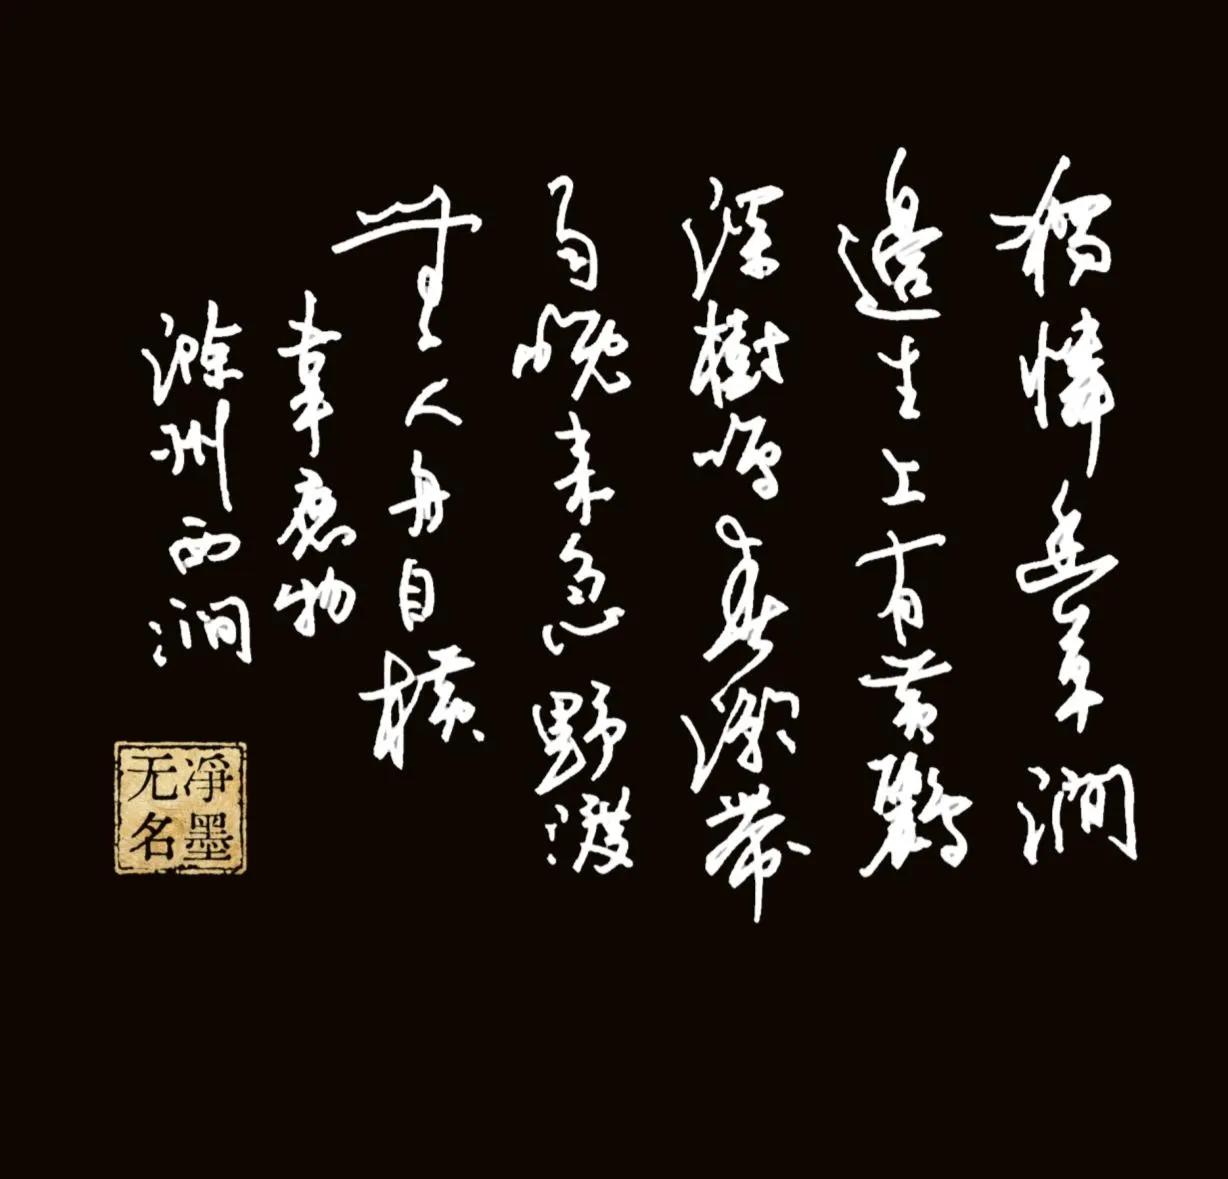 獨憐幽草澗
邊生上有黄鸝
深樹鳴春潮帶
雨晚来急野渡
無人舟自横
韋應物
滁州西澗
凈墨
无名